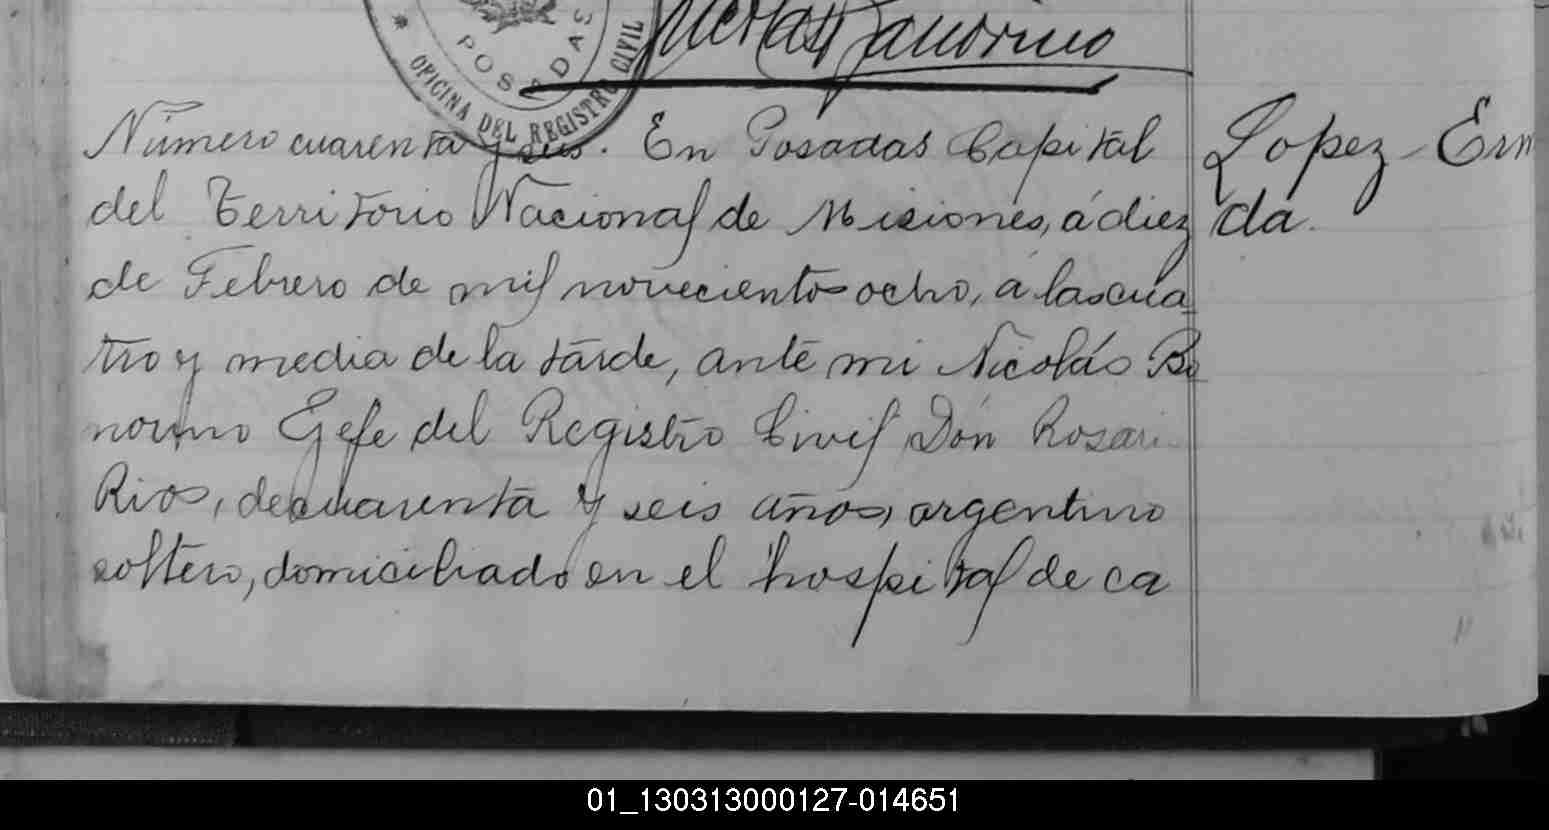 POSADAS
* OFICINA DEL REGISTRO CIVIL
Número cuarenta y seis. En Posadas Capital
del Territorio Nacional de Misiones, á diez
de Febrero de mil novecientos ocho, á las cua
tro y media de la tarde, ante mi Nicolás Bo
norino Gefe del Registro Civil Dón Rosari
Rios, de cuarenta y seis años, argentino
soltero, domiciliado en el hospital de ca
Lopez Erm
da.
01_130313000127-014651